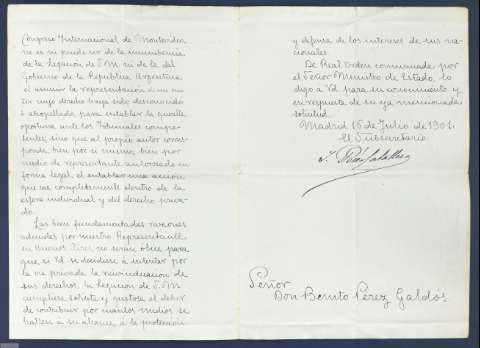 Congreso Internacional de Montevideo
no es ni puede ser de la incumbencia
de la Legación de S.M. ni de la del
Gobierno de la República Argentina
el asumir la representación de un au-
tor cuyo derecho haya sido desconocido
ó atropellado para entablar la querella
oportuna ante los Tribunales compe-
tentes, sino que al propio autor corres-
ponde bien por si mismo, bien por
medio de representante autorizado en
forma legal el entablar una acción
que cae completamente dentro de la
esfera individual y del derecho priva-
do.
Las bien fundamentadas razones
aducidas por nuestro Representante
en Buenos Aires no serán óbice para
que, si Vd. se decidiese á intentar por
la vía privada la reivindicación de
sus derechos, la Legación de S.M.
cumpliese solícita y gustosa el deber
de contribuir por cuantos medios se
hallen á su alcance, á la protección
y defensa de los intereses de sus na-
cionales.
De Real Orden comunicada por
el Señor Ministro de Estado, lo
digo á Vd. para su conocimiento y
en respuesta de su ya mencionada
solicitud.
Madrid 16 de Julio de 1901.
El Subsecretario
J. Pérez Caballero
Señor
Don Benito Pérez Galdós